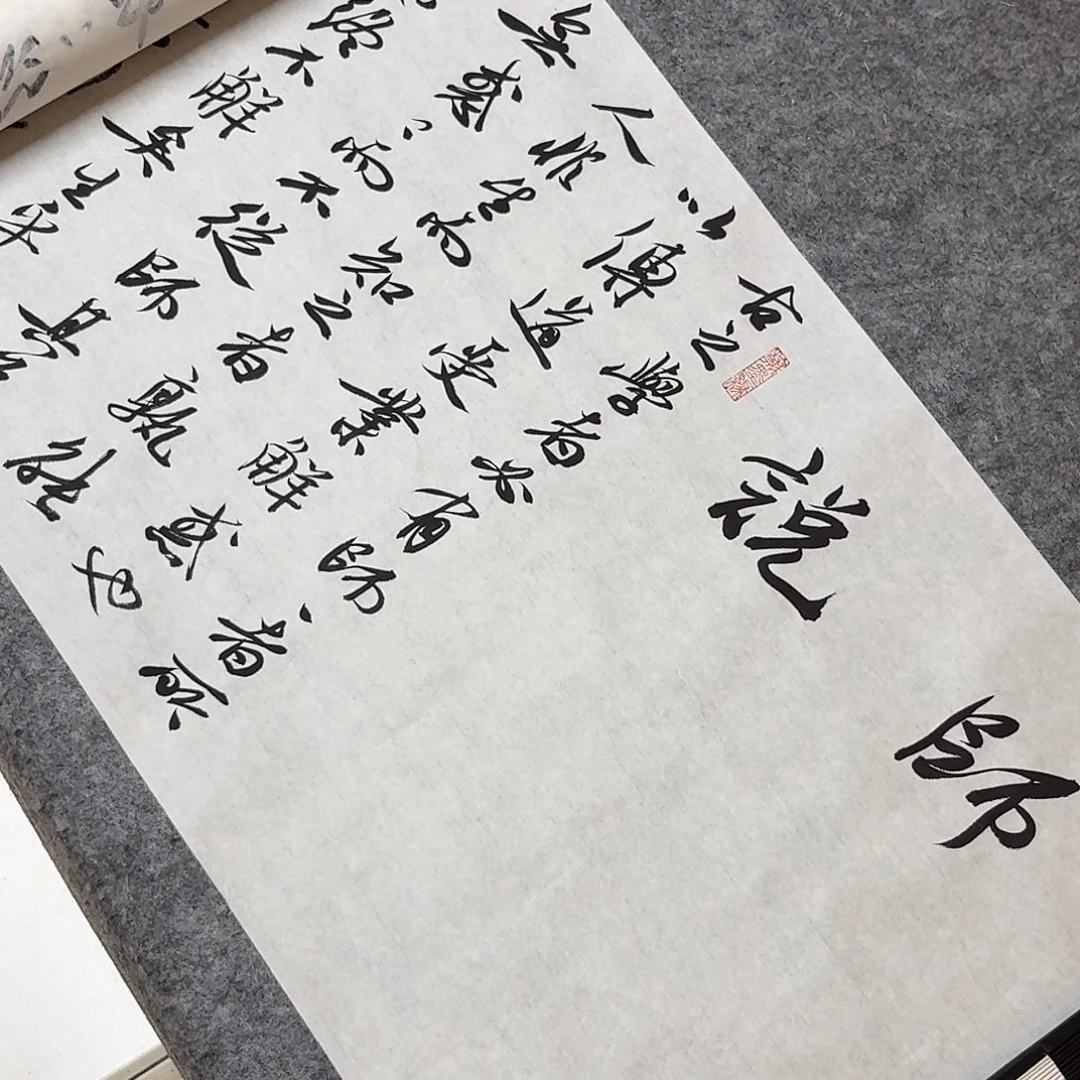 師說
古之學者必有師〻者所
以傳道受業解惑也
人非生而知之者孰能
無惑〻而不從師其
終不解矣生乎